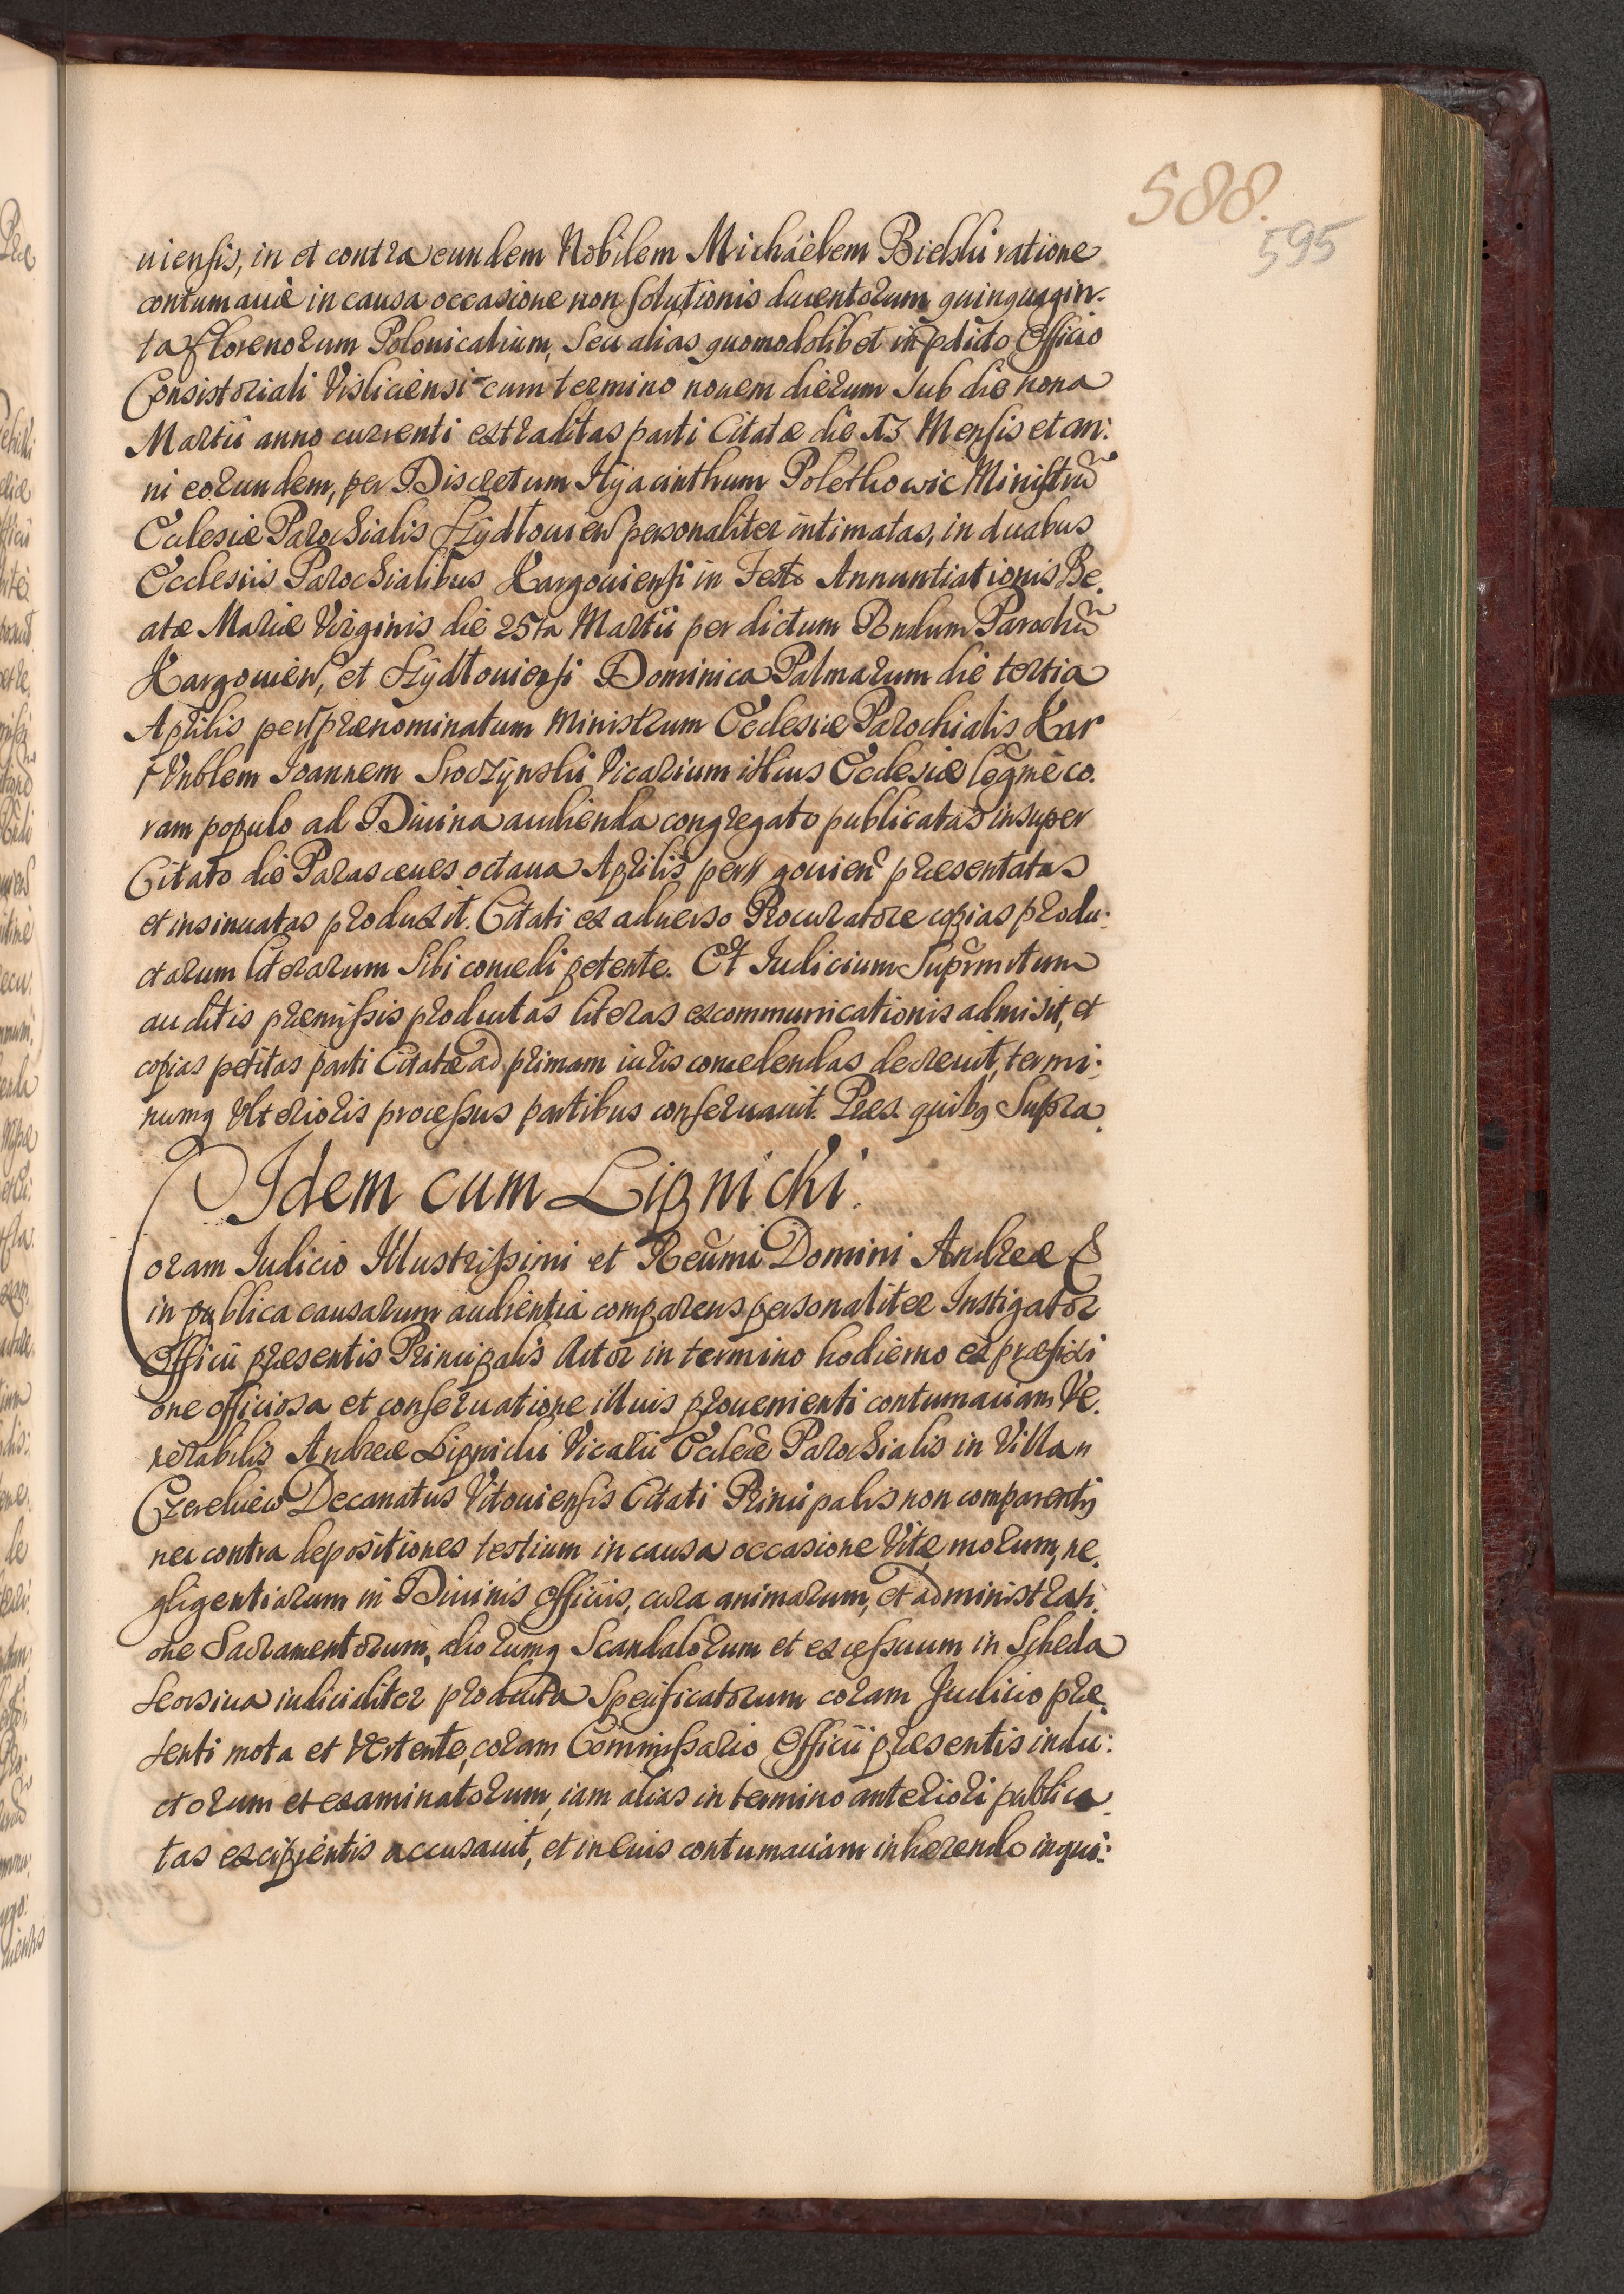 588.
595
uiensis, in et contra eundem Nobilem Michäelem Bielski ratione
contumaciæ in causa occasione non solutionis ducentorum quinquagin-
ta florenorum Polonicalium, seu alias quomodolibet in prædicto Officio
Consistoriali Visliciensi cum termino nouem dierum sub die nona
Martii anno currenti extraditas parti Citatæ die 13 Mensis et an:
ni eorundem, per Discretum Hyacinthum Polethowic Ministrũ
Ecclesiæ Parochialis Szydłouien personaliter intimatas, in duabus
Ecclesiis Parochialibus Kargouiensi in Festo Annuntiationis Be.
atæ Mariæ Virginis die 25ta Martii per dictum Rndum Parochũ
Kargouien, et Szydłouiensi Dominica Palmarum die tertia
Aprilis per prænominatum Ministrum Ecclesiæ Parochialis Kar
Vnblem Joannem Sroczynski Vicarium illius Ecclesiæ legmẽ co.
ram populo ad Diuina audienda congregato publicatas insuper
Citato die Parasceues octaua Aprilis per gouien præsentatas
et insinuatas produxit. Citati ex aduerso Procuratore copias produ:
ctarum literarum sibi concedi petente. Et Iudicium Suprmtum
auditis præmissis productas literas excommunicationis admisit, et
copias petitas parti Citatæ ad primam iuris concedendas decreuit, termi:
numq Vlterioris processus partibus conseruauit. Præs. quibq Supra.
Idem cum Lignicki.
Coram Iudicio Illustrissimi et Reũmi Domini Andreæ &
in publica causarum audientia comparens personaliter Instigator
Officii præsentis Principalis Actor in termino hodierno ex præfixi
one officiosa et conseruatione illius prouenienti contumaciam Ve.
nerabilis Andreæ Lignicki Vicarii Eccleæ Parochialis in Villa
Czerchiew Decanatus Vitouiensis Citati Principalis non comparentis
nec contra depositiones testium in causa occasione Vitæ morum, ne.
gligentiarum in Diuinis officiis, cura animarum, et administrati.
one Sacramentorum, aliorumq Scandalorum et excessuum in Scheda
seorsiua iudicialiter producta specificatorum coram Judicio præ.
senti mota et Vertente, coram Commissario Officii præsentis indu:
ctorum et examinatorum, iam alias in termino anteriori publica.
tas excipientis accusauit, et in eius contumaciam inhærendo inqui: